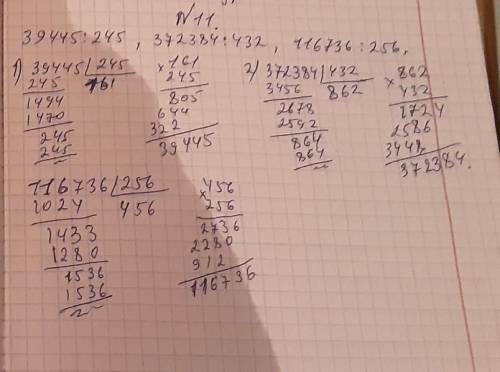 №11.
39445:245, 372384:432, 116736:256.
1) 39445 | 245
245 161
1494
1470
245
245
× 161
245
805
644
322
39445
2) 372384 | 432
3456 862
2678
2592
864
864
× 862
432
1724
2586
3448
372384.
116736 | 256
1024 456
1433
1280
1536
1536
× 456
256
2736
2280
912
116736